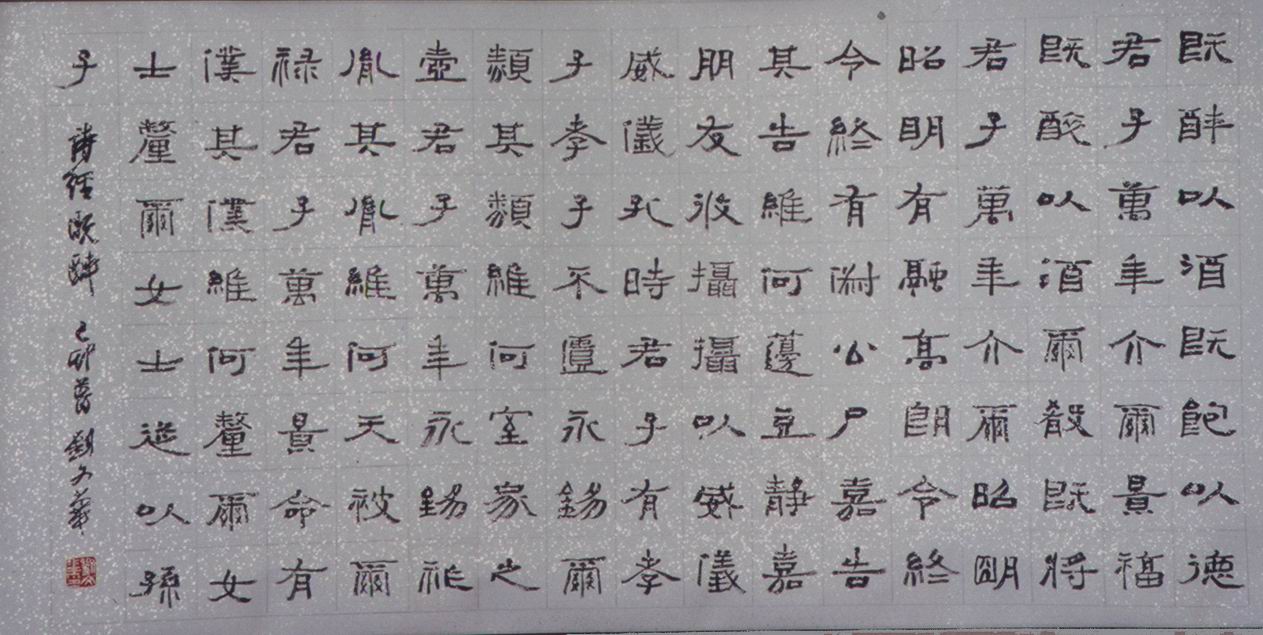 既醉以酒既飽以德
君子萬年介爾景福
既醉以酒爾殽既將
君子萬年介爾昭明
昭明有融高朗令終
令終有俶公尸嘉告
其告維何籩豆静嘉
朋友攸攝攝以威儀
威儀孔時君子有孝
子孝子不匱永錫爾
類其類維何室家之
壼君子萬年永錫祚
胤其胤維何天被爾
禄君子萬年景命有
僕其僕維何釐爾女
士釐爾女士從以孫
子 詩經既醉 己卯春劉文華